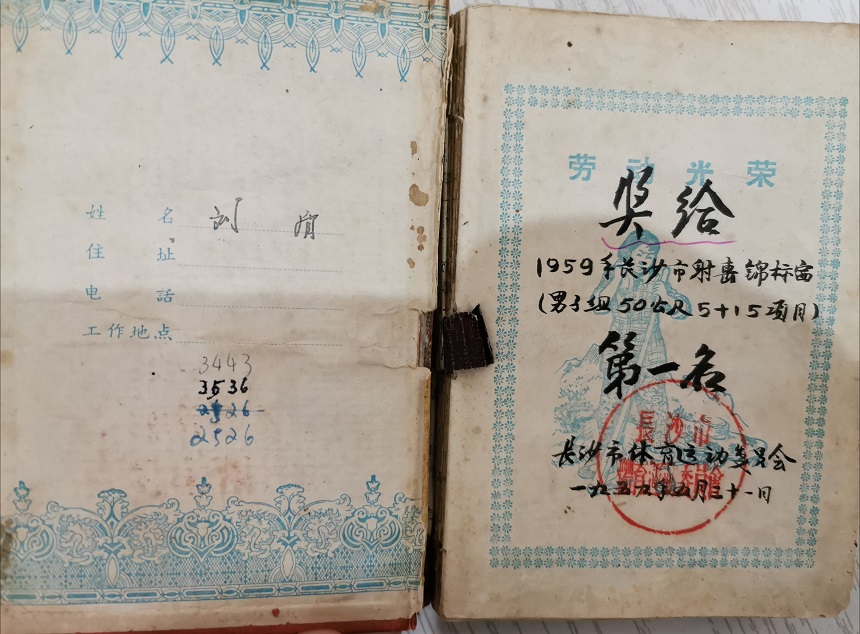 姓 名 刘
住 址
电 话
工作地点
3443
3536
2526
2526
劳动光荣
奖给
1959年长沙市射击锦标赛
(男子组50公尺5+15项目)
第一名
長沙市
长沙市体育运动委员会
一九五九年五月三十一日